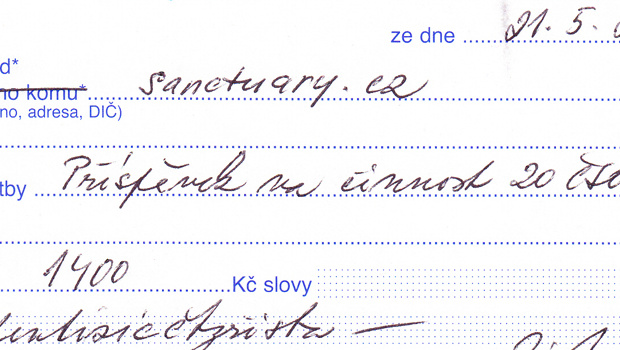 ze dne 21. 5.
d*
no komu* sanctuary.cz
no, adresa, DIČ)
tby Příspěvek na činnost 20
1400 Kč slovy
čtyřista —